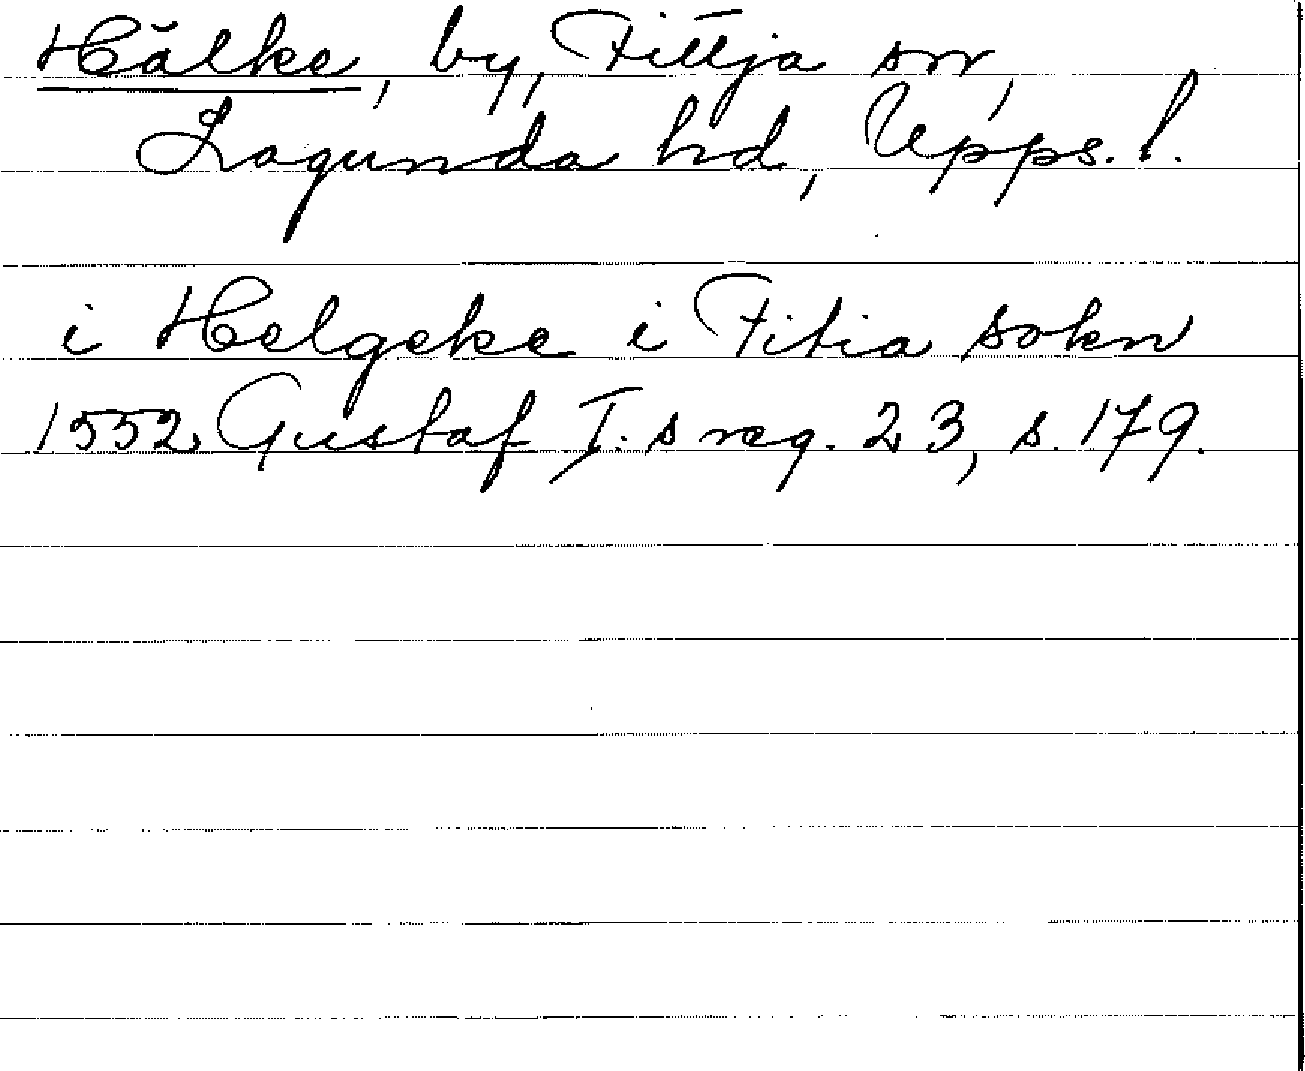 Hälke, by, Fittja sn,
Lagunda hd, Upps. l.
i Helgeke i Fitia sokn
1552 Gustaf I:s reg. 23, s. 179.